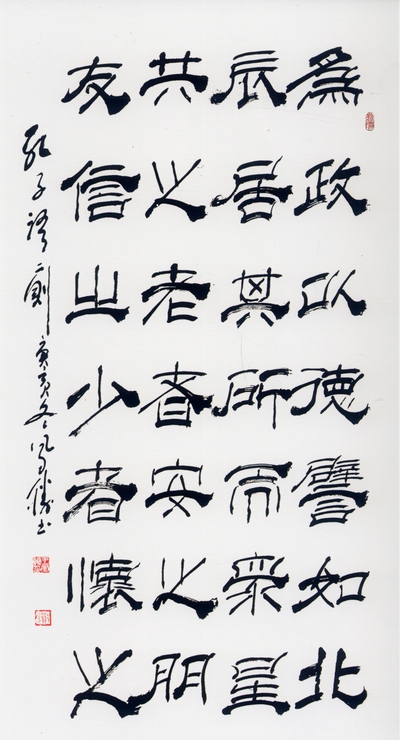 為政以德譬如北
辰居其所而眾星
共之老者安之朋
友信之少者懷之
孔子語二則庚寅冬